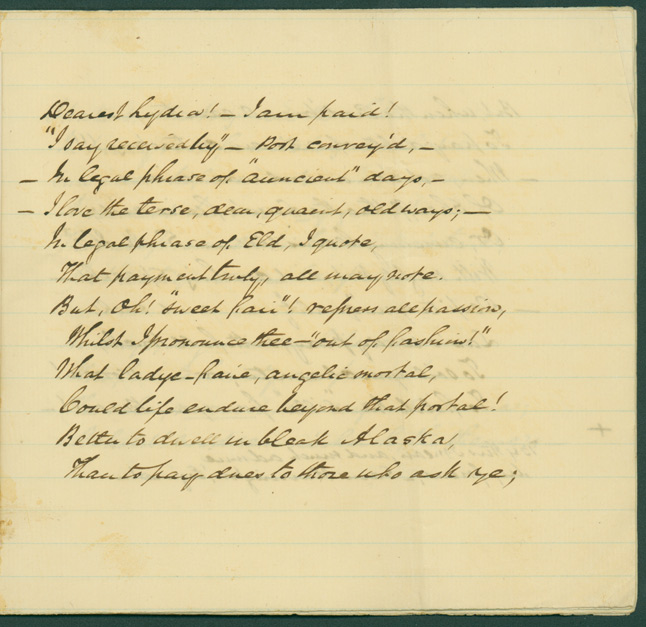 Dearest Lydia! — I am paid!
"I say received by," — Post convey'd, —
— In legal phrase of "auncient" days, —
— I love the terse, dear, quaint, old ways; —
In legal phrase of Eld, I quote,
That payment truly, all may note.
But, Oh! "sweet fair"! repress all passion,
Whilst I pronounce thee — "out of fashion!"
What ladye-faire, angelic mortal,
Could life endure beyond that portal!
Better to dwell in bleak Alaska,
Than to pay dues to those who ask ye;